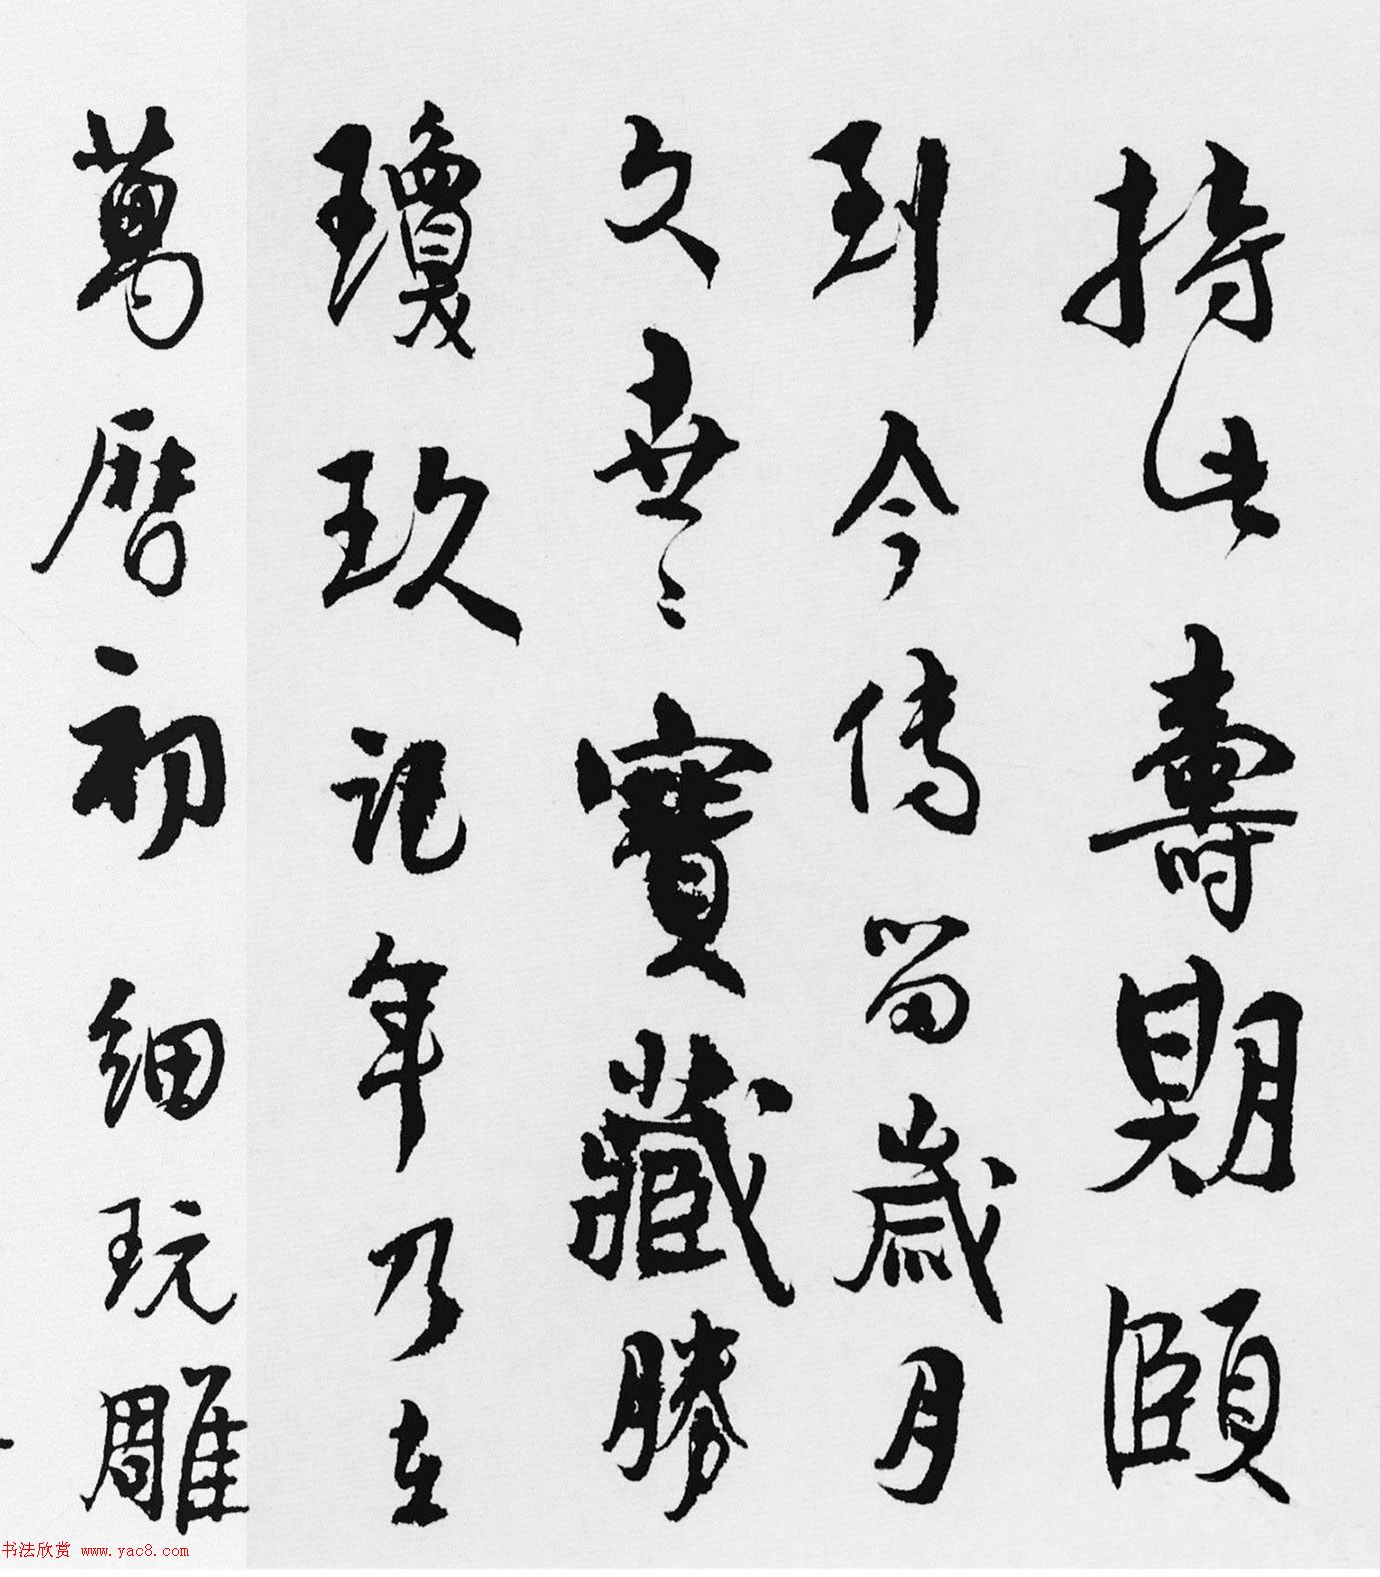 持此壽期頤
到今傳留歲月
久世世寶藏勝
瓊玖記年乃在
萬曆初細玩雕
书法欣赏 www.yac8.com